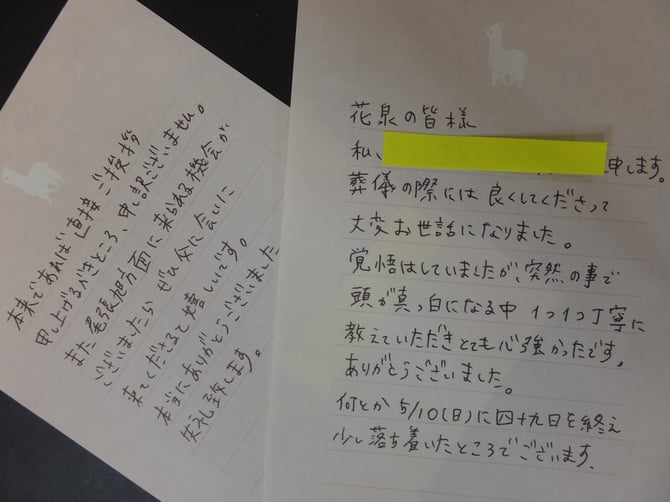 花泉の皆様
私、
申します。
葬儀の際には良くしてくださって
大変お世話になりました。
覚悟はしていましたが、突然の事で
頭が真っ白になる中 1つ1つ丁寧に
教えていただきとても心強かったです。
ありがとうございました。
何とか 5/10(日)に四十九日を終え
少し落ち着いたところでございます。
本来であれば直接ご挨拶
申し上げるべきところ、申し訳ございません。
また尾張旭方面に来られる機会が
ございましたら ぜひ父に会いに
来てくださると嬉しいです。
本当にありがとうございました
失礼致します。